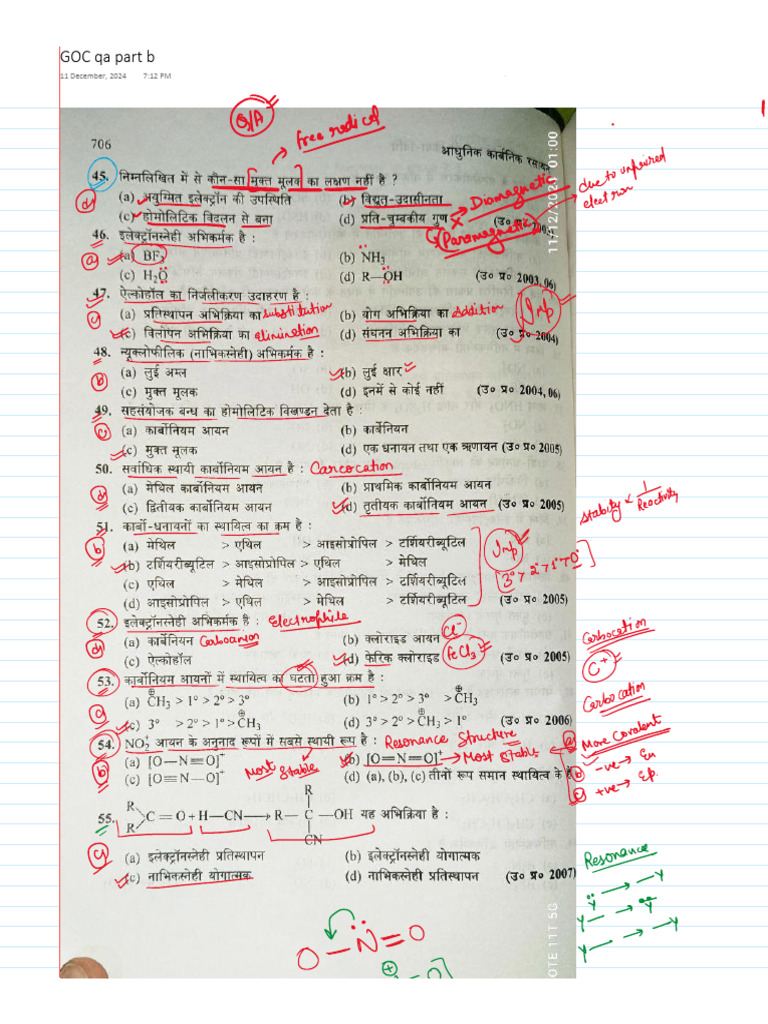 GOC qa part b
11 December, 2024 7:12 PM
Q/A
free radical
706
आधुनिक कार्बनिक रसा
11/12/2020 01:00
45. निम्नलिखित में से कौन-सा मुक्त मूलक का लक्षण नहीं है ?
(a) अयुग्मित इलेक्ट्रॉन की उपस्थिति (b) विद्युत-उदासीनता
Diamagnetic
due to unpaired electron
(c) होमोलिटिक विदलन से बना (d) प्रति-चुम्बकीय गुण
Paramagnetic
46. इलेक्ट्रॉनस्नेही अभिकर्मक है :
(a) BF3 (b) NH3
(c) H2O (d) R—OH (उ० प्र० 2003, 06)
47. ऐल्कोहॉल का निर्जलीकरण उदाहरण है :
Imp
(a) प्रतिस्थापन अभिक्रिया का substitution (b) योग अभिक्रिया का Addition
(c) विलोपन अभिक्रिया का elimination (d) संघनन अभिक्रिया का (उ० प्र० 2004)
48. न्यूक्लोफीलिक (नाभिकस्नेही) अभिकर्मक है :
(a) लुई अम्ल (b) लुई क्षार
(c) मुक्त मूलक (d) इनमें से कोई नहीं (उ० प्र० 2004, 06)
49. सहसंयोजक बन्ध का होमोलिटिक विखण्डन देता है :
(a) कार्बोनियम आयन (b) कार्बेनियन
(c) मुक्त मूलक (d) एक धनायन तथा एक ऋणायन (उ० प्र० 2005)
50. सर्वाधिक स्थायी कार्बोनियम आयन है : Carcocation
(a) मेथिल कार्बोनियम आयन (b) प्राथमिक कार्बोनियम आयन
(c) द्वितीयक कार्बोनियम आयन (d) तृतीयक कार्बोनियम आयन (उ० प्र० 2005)
Stabity ∝ 1/Reactivity
51. कार्बो-धनायनों का स्थायित्व का क्रम है :
(a) मेथिल > एथिल > आइसोप्रोपिल > टर्शियरीब्यूटिल
Imp
(b) टर्शियरीब्यूटिल > आइसोप्रोपिल > एथिल > मेथिल
3° > 2° > 1° > 0°
(c) एथिल > मेथिल > आइसोप्रोपिल > टर्शियरीब्यूटिल
(d) आइसोप्रोपिल > एथिल > मेथिल > टर्शियरीब्यूटिल (उ० प्र० 2005)
52. इलेक्ट्रॉनस्नेही अभिकर्मक है : Electrophile
(a) कार्बेनियन Carboanion (b) क्लोराइड आयन Cl⁻
(c) ऐल्कोहॉल (d) फेरिक क्लोराइड FeCl3 (उ० प्र० 2005)
Carbocation
C⁺
53. कार्बोनियम आयनों में स्थायित्व का घटता हुआ क्रम है :
(a) C⊕H3 > 1° > 2° > 3° (b) 1° > 2° > 3° > C⊕H3
Carbocation
(c) 3° > 2° > 1° > C⊕H3 (d) 3° > 2° > C⊕H3 > 1° (उ० प्र० 2006)
54. NO2⁺ आयन के अनुनाद रूपों में सबसे स्थायी रूप है : Resonance Structure
(a) More Covalent
(a) [O—N=O]⁺ Most Stable (b) [O=N=O]⁺ → Most Stable
(b) -ve → En
(c) [O≡N—O]⁺ (d) (a), (b), (c) तीनों रूप समान स्थायित्व के
(c) +ve → Ep.
55. R R C=O + H—CN → R—C—OH यह अभिक्रिया है :
R
CN
Resonance
(a) इलेक्ट्रॉनस्नेही प्रतिस्थापन (b) इलेक्ट्रॉनस्नेही योगात्मक
(c) नाभिकस्नेही योगात्मक (d) नाभिकस्नेही प्रतिस्थापन (उ० प्र० 2007)
Ÿ → —Y
Y— → Ÿ
Y— → —Y
O—N=O
OTE 11T 5G